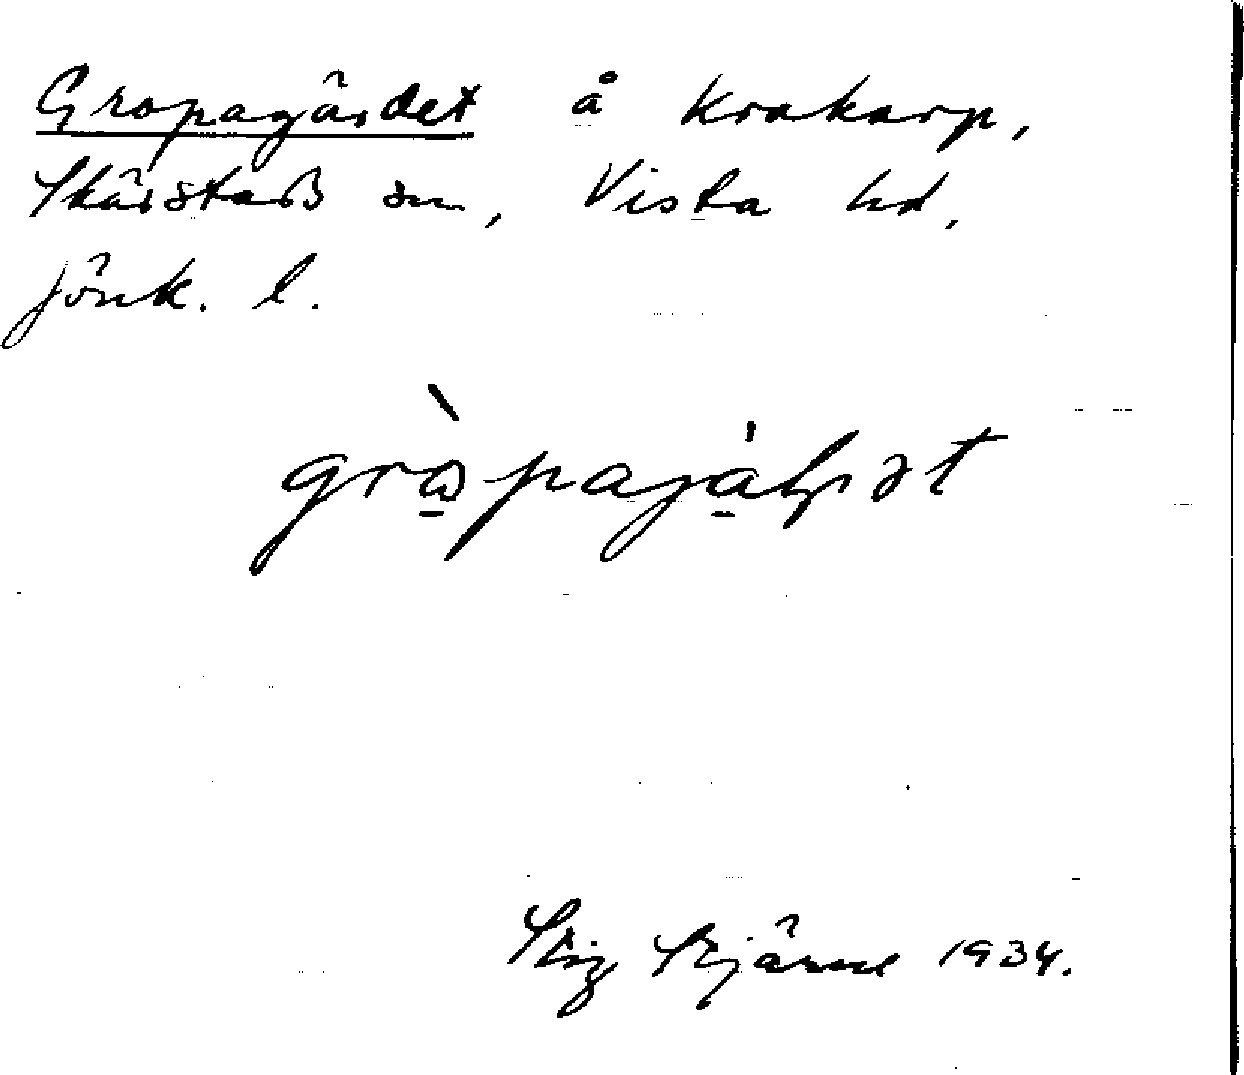 Gropagärdet å Krakarp,
Skärstads sn, Vista hd,
Jönk. l.
Stig Stjärne 1934.